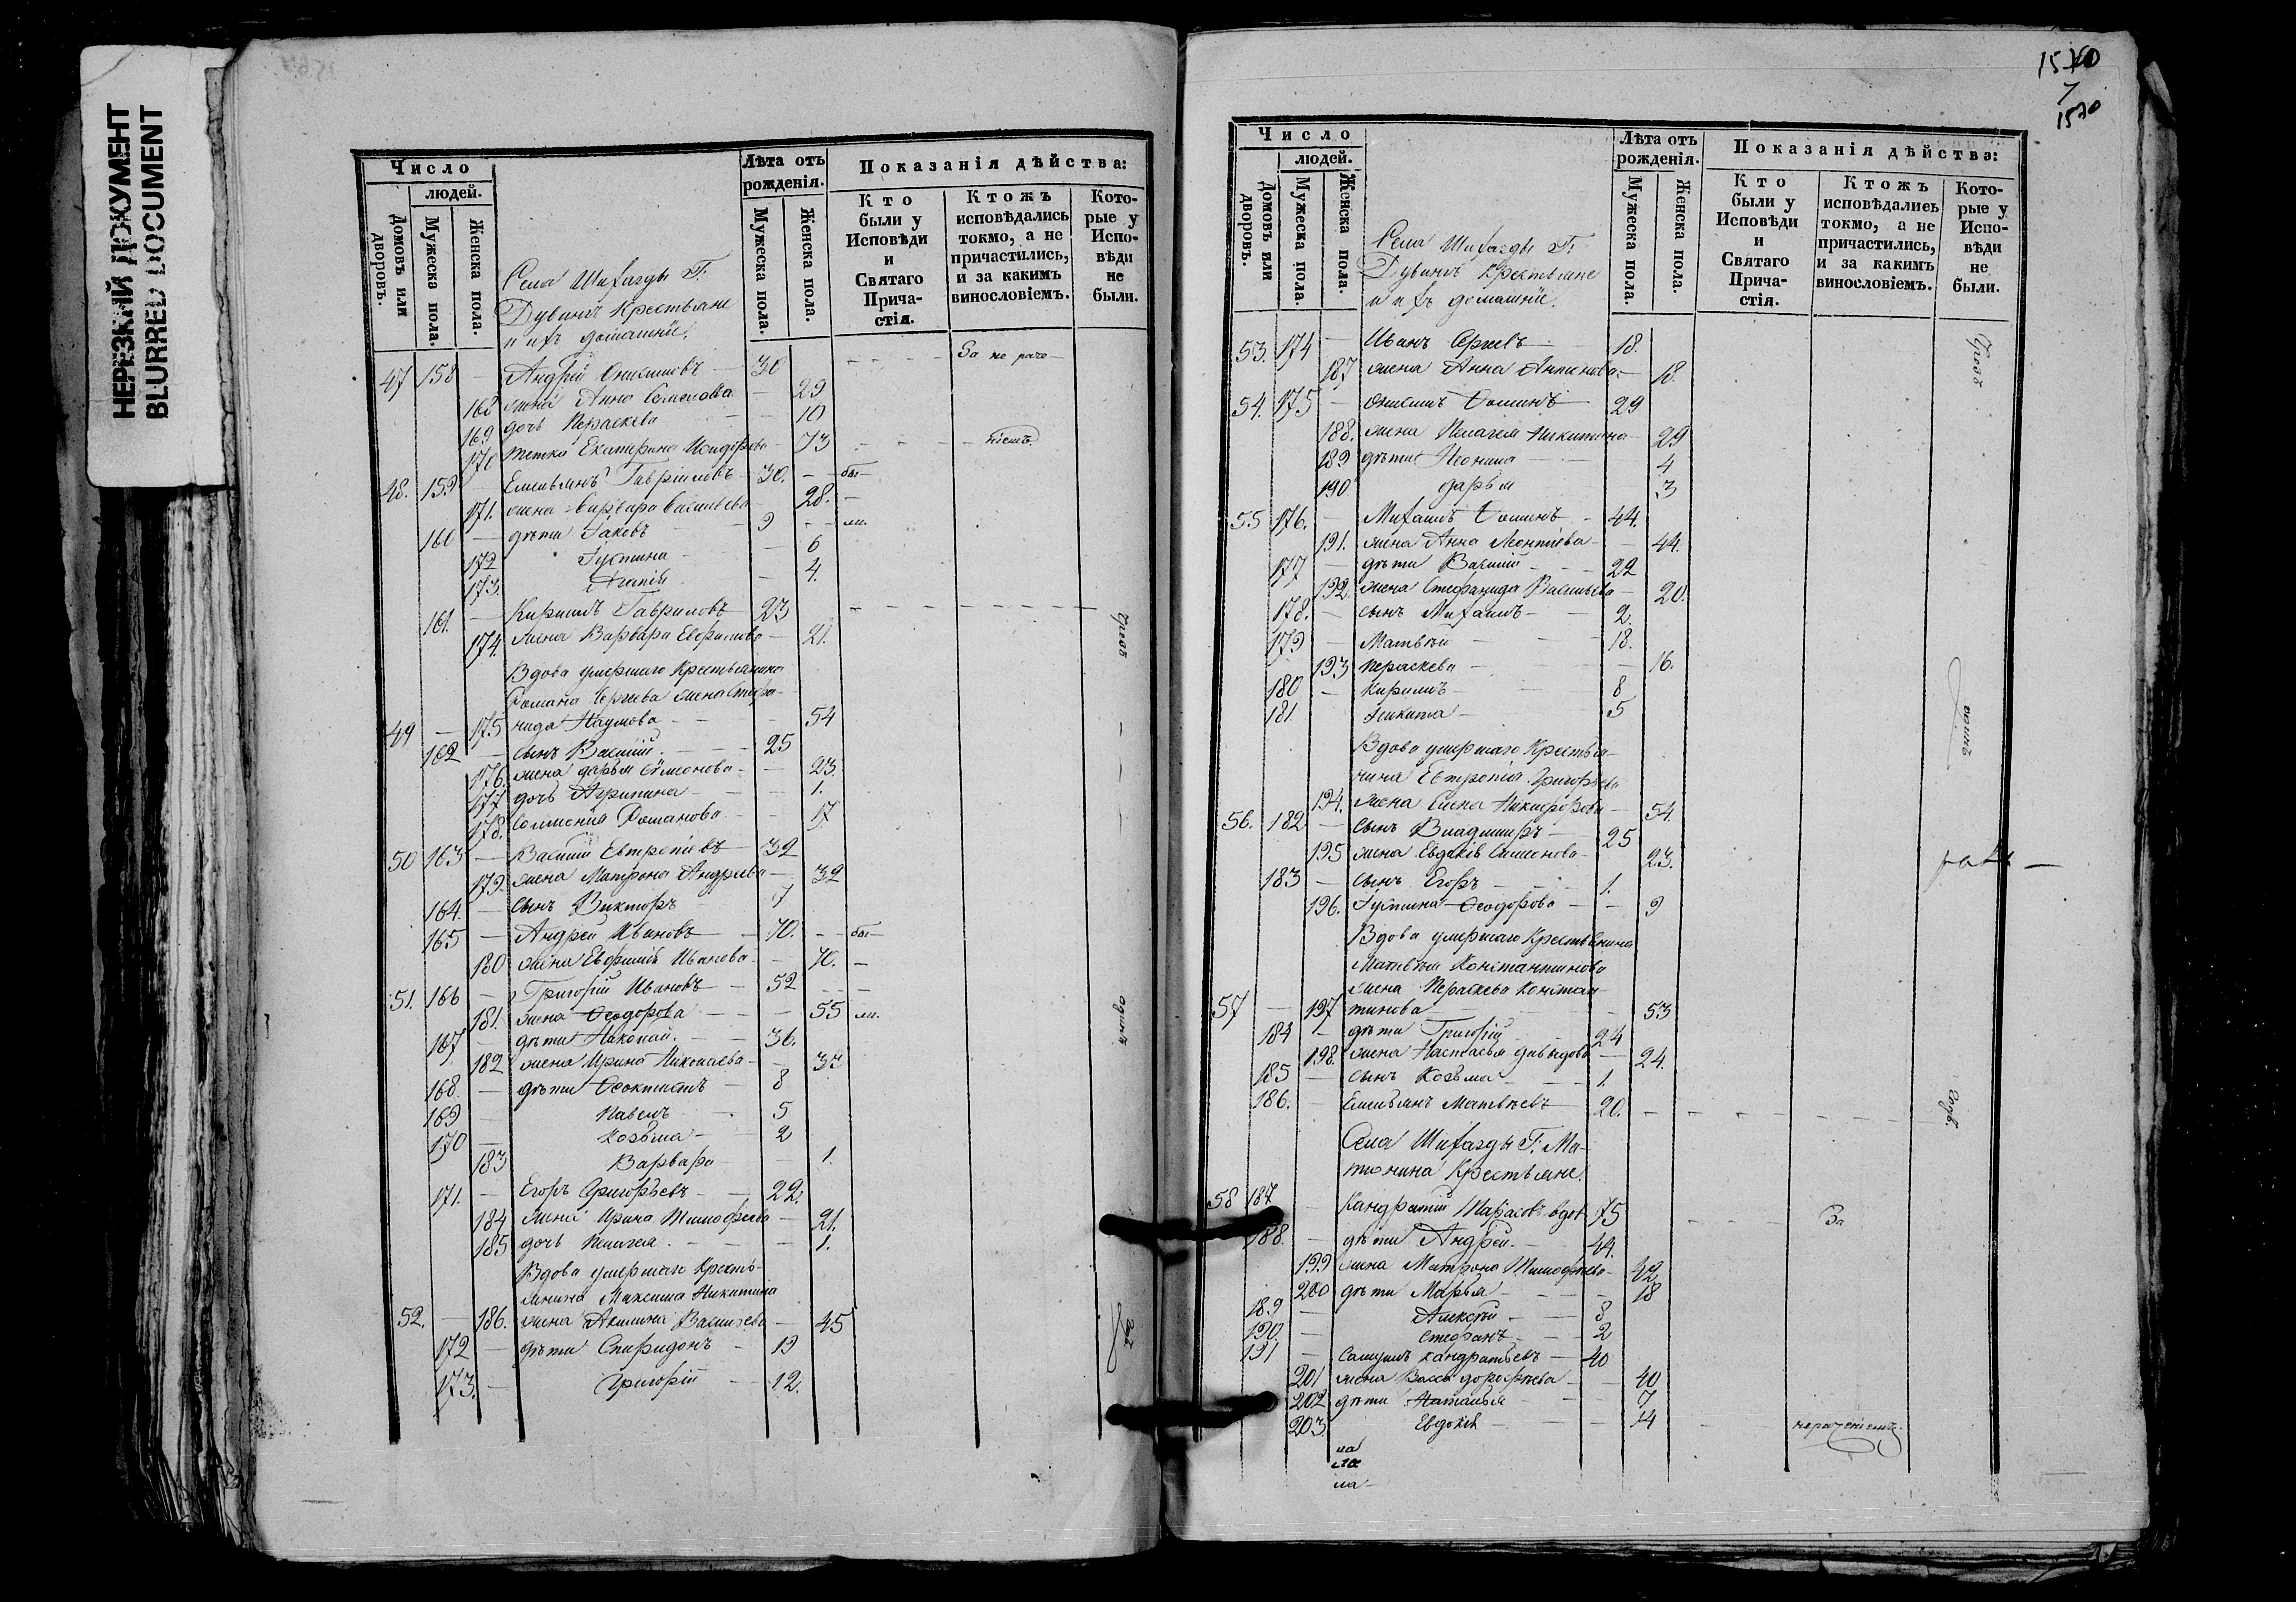 НЕРЕЗКИЙ ДОКУМЕНТ
BLURRED DOCUMENT
Число
людей.
Домовъ или дворовъ.
Мужеска пола.
Женска пола.
Лѣта отъ рожденія.
Мужеска пола.
Женска пола.
Показанія дѣйства:
Кто были у Исповѣди и Святаго Прича-стія.
Ктожъ исповѣдались токмо, а не причастились, и за какимъ винословіемъ.
Кото-рые у Испо-вѣди не были.
Села Шихазды Г.
Дувинъ Крестьяне
и ихъ домашніе,
47 158 — Андрей Онисимовъ — 30 За не раче—
168 жена Анна Семенова — 29
169 дочь Пераскева — 10
170 тетка Екатерина Исидорова — 73 — ніемъ
48. 159 — Емельянъ Гавриловъ 30. — бы—
171. жена Варвара Васильева 28. —
160 — дѣти Іаковъ — 9 — ли.
172 Іустина — 6
173. Агапія — 4.
161. — Кирилъ Гавриловъ 23
174. жена Варвара Ефимова — 21.
Вдова умершаго Крестьянина
Романа Сергѣева жена Стефа-
49 — 175 нида Наумова — 54
162 — сынъ Василій. — 25
176. жена дарья Симонова — 23.
177. дочь Агрипина — 1.
178. Соломонія Романова — 17
50 163 — Василій Евтропіевъ 32
179. жена Матрона Андреева — 32
164. — сынъ Викторъ 7
165 — Андрей Ивановъ — 70. — бы—
180 жена Евфимія Иванова — 70. —
51. 166 — Григорій Ивановъ — 52 — —
181. жена Ѳеодорова — 55 ли.
167 — дѣти Николай. — 36.
182 жена Ирина Николаева — 33
168. — дѣти Ѳеоктистъ — 8
169 — Павелъ — 5
170 — Козьма — 2
183 Варвара — 1.
171. — Егоръ Григорьевъ — 22.
184 жена Ирина Тимофеева — 21.
185 дочь Пелагея. — 1.
Вдова умершаго Кресть-
янина Максима Никитина
52. — 186. жена Акилина Васильева — 45
172 — дѣти Спиридонъ — 19
173. — Григорій — 12.
Чрезъ
одинъ
1570
1570
Число
людей.
Домовъ или дворовъ.
Мужеска пола.
Женска пола.
Лѣта отъ рожденія.
Мужеска пола.
Женска пола.
Показанія дѣйства:
Кто были у Исповѣди и Святаго Прича-стія.
Ктожъ исповѣдались токмо, а не причастились, и за какимъ винословіемъ.
Кото-рые у Испо-вѣди не были.
Села Шихазды Г.
Дувинъ Крестьяне
и ихъ домашніе.
53. 174 — Иванъ Сергѣевъ 18.
187 жена Анна Антинова — 18.
54. 175 — Онисимъ Ѳоминъ 29
188. жена Пелагея Никитина — 29
189 дѣти Леонила 4
190 дарья — 3
55 176. — Михаилъ Ѳоминъ — 44.
191. жена Анна Леонтіева — 44.
177 — дѣти Василій — 22
192. жена Стефанида Васильева — 20.
178. — сынъ Михаилъ — 2.
179 — Матвѣй — 18.
193 Пераскева — 16.
180 — Кирилъ — 8
181 Никита — 5
Вдова умершаго Крестья-
нина Евтропія Григорьева
194. жена Елена Никифорова — 54.
56. 182 — сынъ Владимиръ — 25
195 жена Евдокія Симонова — 23.
183 — сынъ Егоръ — 1.
196. Іустина Ѳеодорова — 9
Вдова умершаго Крестьянина
Матвѣя Константинова
жена Пераскева Констан-
57 — 197 тинова — 53
184 — дѣти Григорій 24
198. жена Настасья давыдова — 24.
185 — сынъ Козьма — 1.
186. — Емельянъ Матвѣевъ 20.
Села Шихазды Г. Ма-
тюнина Крестьяне.
58 187 — Кандратій Тарасовъ вдов 75 За
188. — дѣти Андрей. — 44.
199 жена Матрона Тимофеева — 42
200 дѣти Марья — 18
189 — Алексѣй — 8
190. — Стефанъ — 2
191 — Самуилъ Кандратьевъ — 40
201 жена Васса дорофеева — 40
202 дѣти Наталья — 7
203. Евдокія — 4 нераченіемъ.
Чрезъ
одинъ
годъ.
ла
ла
ла